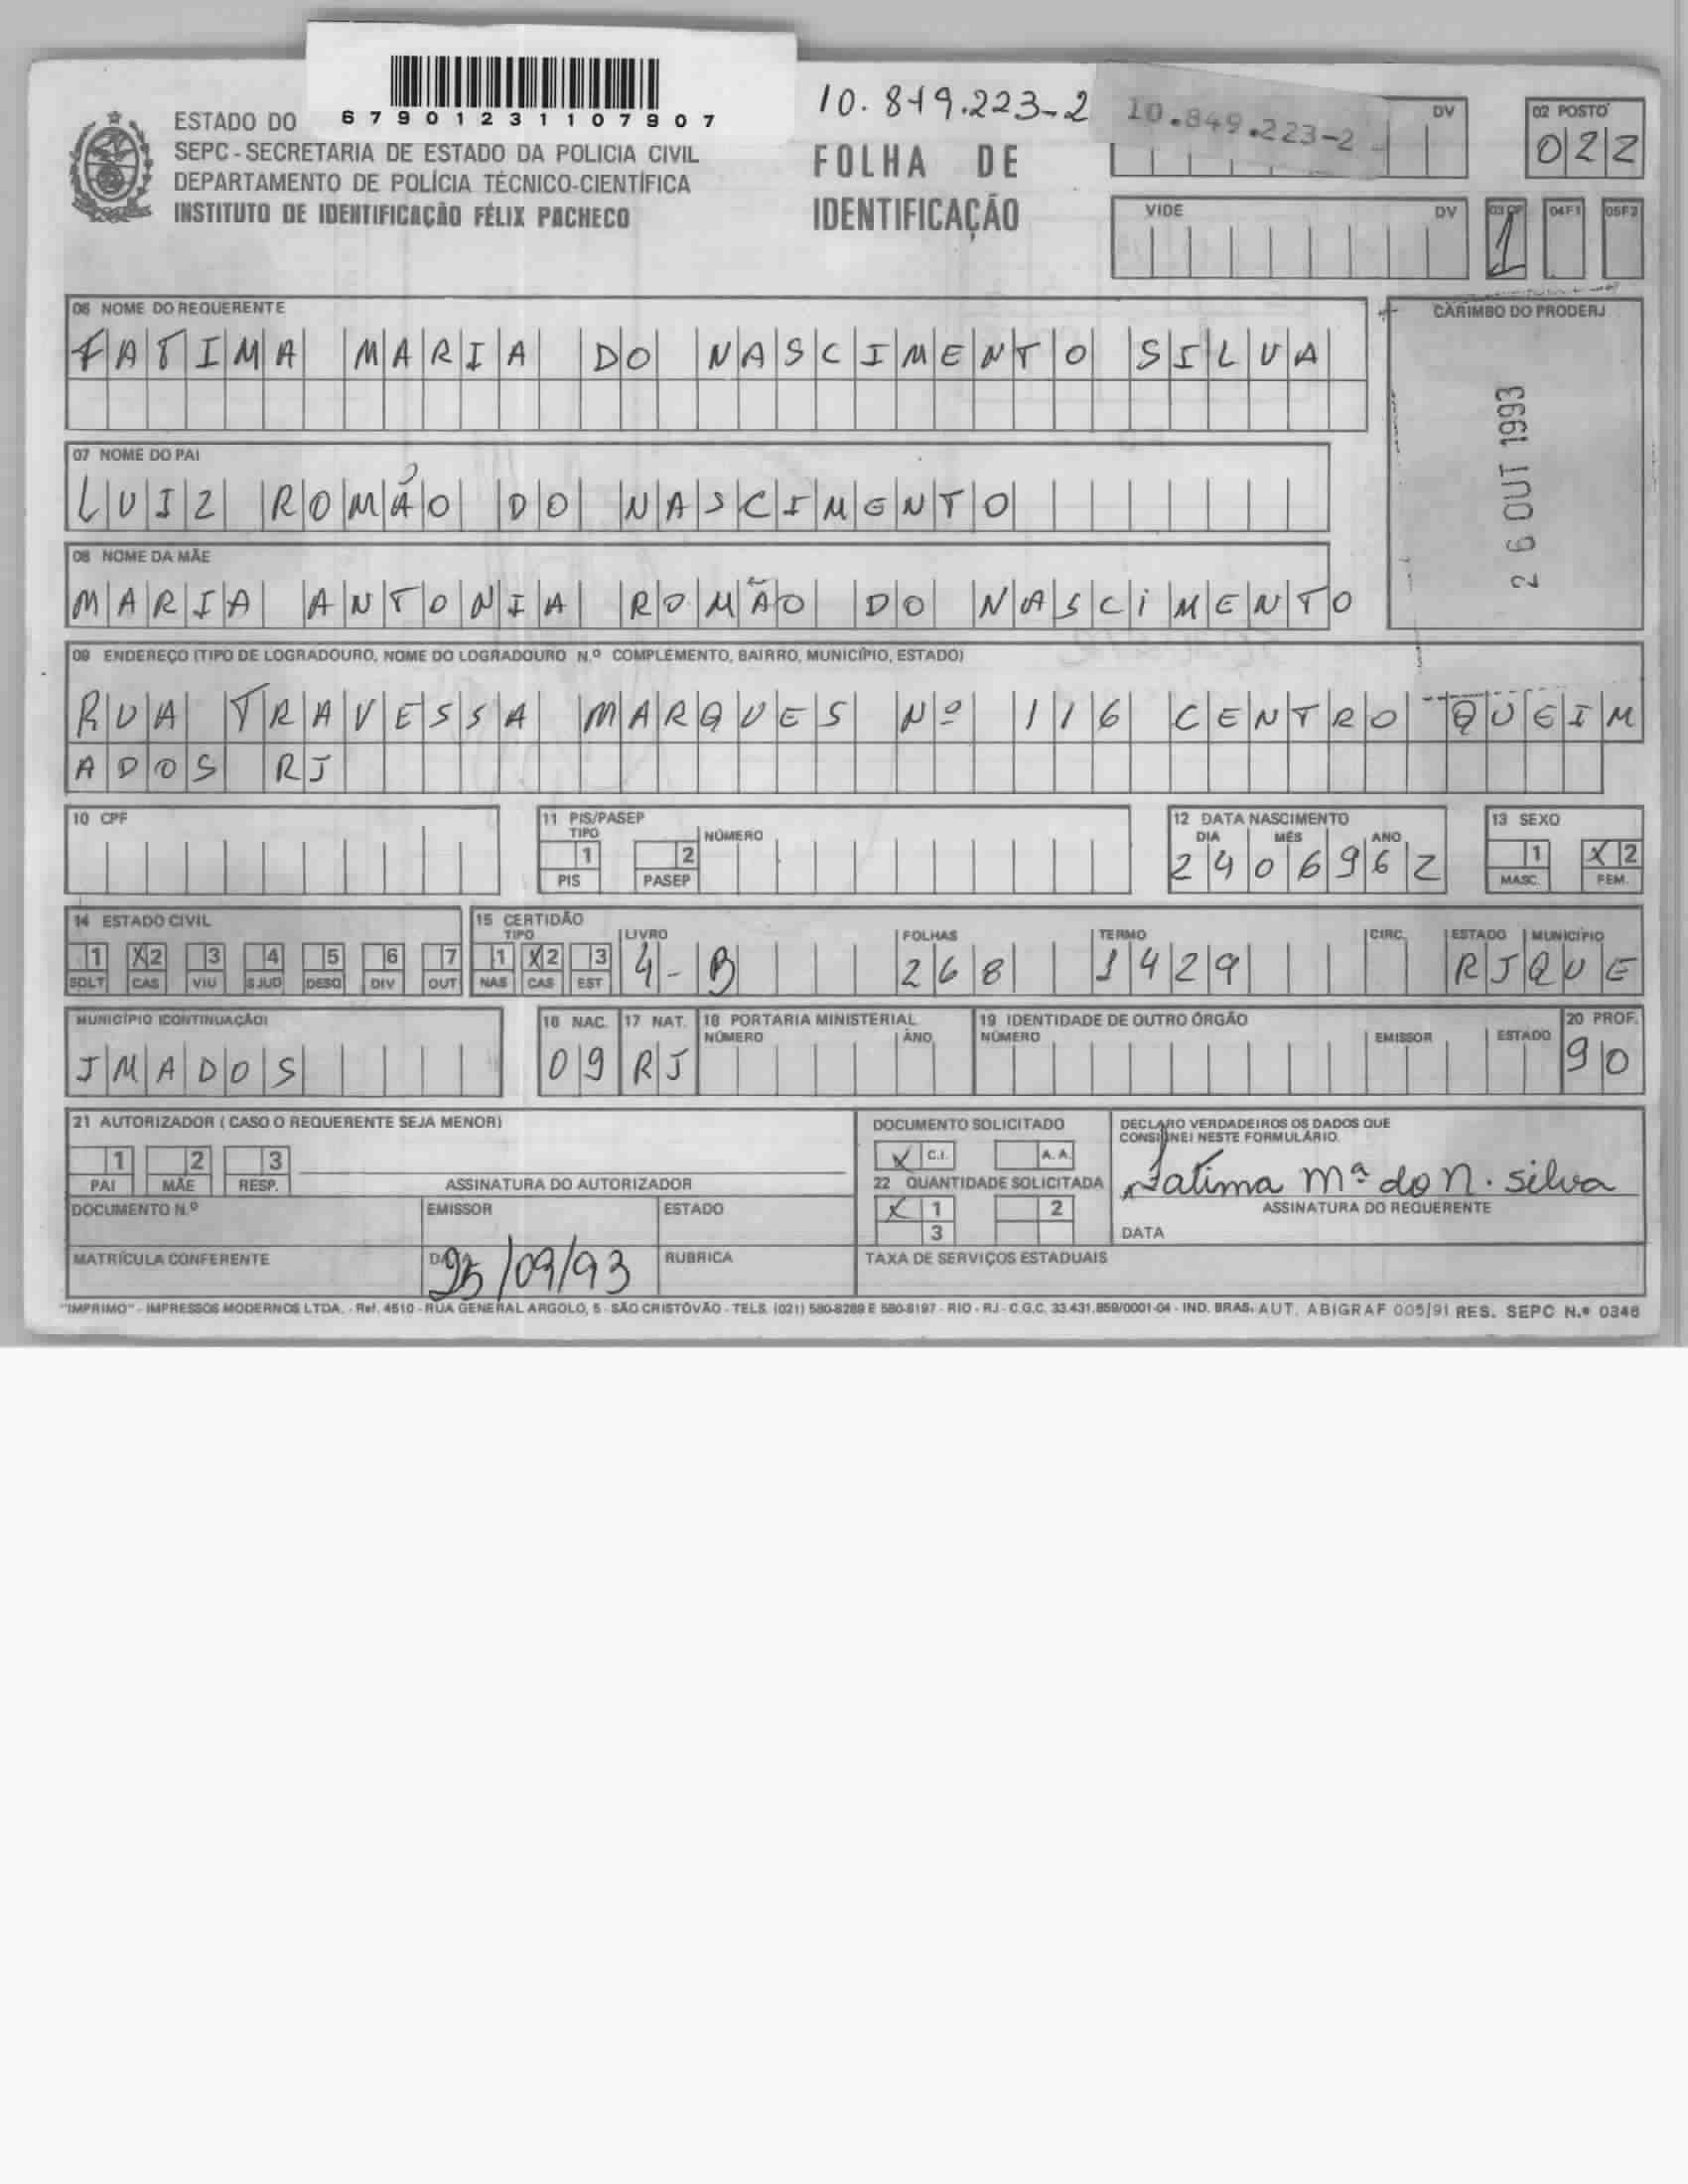 67901231107907
10.849.223-2
10.849.223-2
DV
02 POSTO
022
ESTADO DO
SEPC - SECRETARIA DE ESTADO DA POLICIA CIVIL
DEPARTAMENTO DE POLÍCIA TÉCNICO-CIENTÍFICA
INSTITUTO DE IDENTIFICAÇÃO FÉLIX PACHECO
FOLHA DE
IDENTIFICAÇÃO
VIDE DV
1
04F1 05F2
06 NOME DO REQUERENTE
FATIMA MARIA DO NASCIMENTO SILVA
CARIMBO DO PRODERJ
26 OUT 1993
07 NOME DO PAI
LUIZ ROMÃO DO NASCIMENTO
08 NOME DA MÃE
MARIA ANTONIA ROMÃO DO NASCIMENTO
09 ENDEREÇO (TIPO DE LOGRADOURO, NOME DO LOGRADOURO N.º COMPLEMENTO, BAIRRO, MUNICÍPIO, ESTADO)
RUA TRAVESSA MARQUES Nº 116 CENTRO QUEIM
ADOS RJ
10 CPF
11 PIS/PASEP
TIPO NÚMERO
1 2
PIS PASEP
12 DATA NASCIMENTO
DIA MÊS ANO
2406962
13 SEXO
1 X 2
MASC. FEM.
14 ESTADO CIVIL
1 X2 3 4 5 6 7
SOLT CAS VIU SJUD DESQ DIV OUT
15 CERTIDÃO
TIPO LIVRO FOLHAS TERMO CIRC. ESTADO MUNICÍPIO
1 X2 3 4-B 268 1429 RJ QUE
NAS CAS EST
MUNICÍPIO (CONTINUAÇÃO)
IMADOS
16 NAC.
09
17 NAT.
RJ
18 PORTARIA MINISTERIAL
NÚMERO ANO
19 IDENTIDADE DE OUTRO ÓRGÃO
NÚMERO EMISSOR ESTADO
20 PROF.
90
21 AUTORIZADOR (CASO O REQUERENTE SEJA MENOR)
1 2 3
PAI MÃE RESP.
ASSINATURA DO AUTORIZADOR
DOCUMENTO N.º EMISSOR ESTADO
MATRÍCULA CONFERENTE
25/09/93
RUBRICA
DOCUMENTO SOLICITADO
X C.I. A.A.
22 QUANTIDADE SOLICITADA
X 1 2
3
TAXA DE SERVIÇOS ESTADUAIS
DECLARO VERDADEIROS OS DADOS QUE
CONSIGNEI NESTE FORMULÁRIO.
Fatima Mª do N. Silva
ASSINATURA DO REQUERENTE
DATA
"IMPRIMO" - IMPRESSOS MODERNOS LTDA. - Ref. 4510 - RUA GENERAL ARGOLO, 5 - SÃO CRISTÓVÃO - TELS. (021) 580-8289 E 580-8197 - RIO - RJ - C.G.C. 33.431.859/0001-04 - IND. BRAS. AUT. ABIGRAF 005/91 RES. SEPC N.º 0346